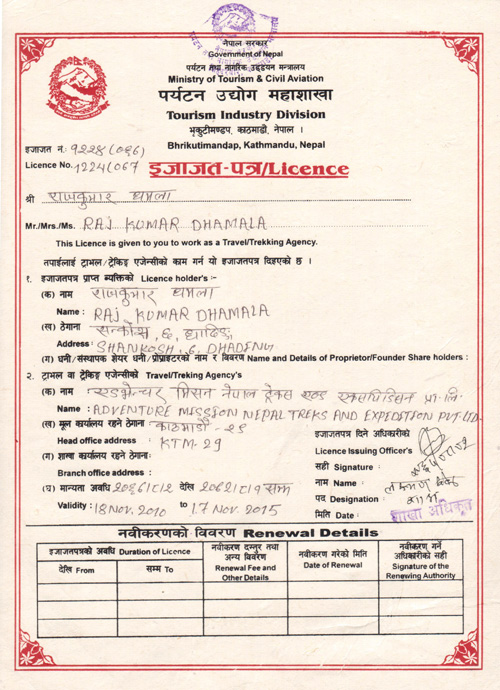 नेपाल सरकार
Government of Nepal
पर्यटन तथा नागरिक उड्डयन मन्त्रालय
Ministry of Tourism & Civil Aviation
पर्यटन उद्योग महाशाखा
Tourism Industry Division
भृकुटीमण्डप, काठमाडौं, नेपाल ।
Bhrikutimandap, Kathmandu, Nepal
इजाजत नं. १२२४(०६७)
Licence No. 1224(067
इजाजत-पत्र/Licence
श्री राजकुमार धमला
Mr./Mrs./Ms. RAJ KUMAR DHAMALA
This Licence is given to you to work as a Travel/Trekking Agency.
तपाईलाई ट्राभल/ट्रेकिङ एजेन्सीको काम गर्न यो इजाजतपत्र दिइएको छ ।
१. इजाजतपत्र प्राप्त ब्यक्तिको Licence holder's :-
(क) नाम राजकुमार धमला
Name : RAJ KUMAR DHAMALA
(ख) ठेगाना
Address : SHANKOSH, 6, DHADENG
(ग) धनी/संस्थापक शेयर धनी/प्रोप्राइटरको नाम र विवरण Name and Details of Proprietor/Founder Share holders :
२. ट्राभल वा ट्रेकिङ एजेन्सीको Travel/Trekking Agency's
(क) नाम : एडभेन्चर मिसन नेपाल ट्रेक्स एण्ड एक्सपिडिसन प्रा. लि.
Name : ADVENTURE MISSION NEPAL TREKS AND EXPEDITION PVT. LTD.
(ख) मूल कार्यालय रहने ठेगाना: काठमाडौं - २९
Head office address : KTM-29
(ग) शाखा कार्यालय रहने ठेगाना:
Branch office address :
(घ) मान्यता अवधि २०६७।८।२ देखि २०७२।८।१ सम्म
Validity : 18 Nov. 2010 to 17 Nov. 2015
इजाजतपत्र दिने अधिकारीको
Licence Issuing Officer's
सही Signature :
नाम Name :
पद Designation :
मिति Date :
शाखा अधिकृत
नवीकरणको विवरण Renewal Details
इजाजतपत्रको अवधि Duration of Licence
देखि From
सम्म To
नवीकरण दस्तुर तथा अन्य विवरण
Renewal Fee and Other Details
नवीकरण गरेको मिति
Date of Renewal
नवीकरण गर्ने अधिकारीको सही
Signature of the Renewing Authority